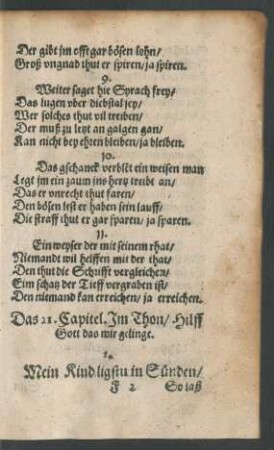 Der gibt jm offt gar bösen lohn/
Groß vngnad thut er spüren/ ja spüren.
9.
Weiter saget hie Syrach frey/
Das lugen vber diebstal sey/
Wer solches thut vil treiben/
Der muß zu letzt an galgen gan/
Kan nicht bey ehren bleiben/ ja bleiben.
10.
Das gschanck verblēt ein weisen man
Legt jm ein zaum ins hertz treibt an/
Das er vnrecht thut faren/
Den bösen lest er haben sein lauff/
Die straff thut er gar sparen/ ja sparen.
11.
Ein weyser der mit seinem rhat/
Niemandt wil helffen mit der that/
Den thut die Schrifft vergleichen/
Eim schatz der Tieff vergraben ist/
Den niemand kan erreichen/ ja erreichen.
Das 21. Capitel. Im Thon/ Hilff
Gott das mir gelinge.
1.
Mein Kind ligstu in Sünden/
F 2 So laß